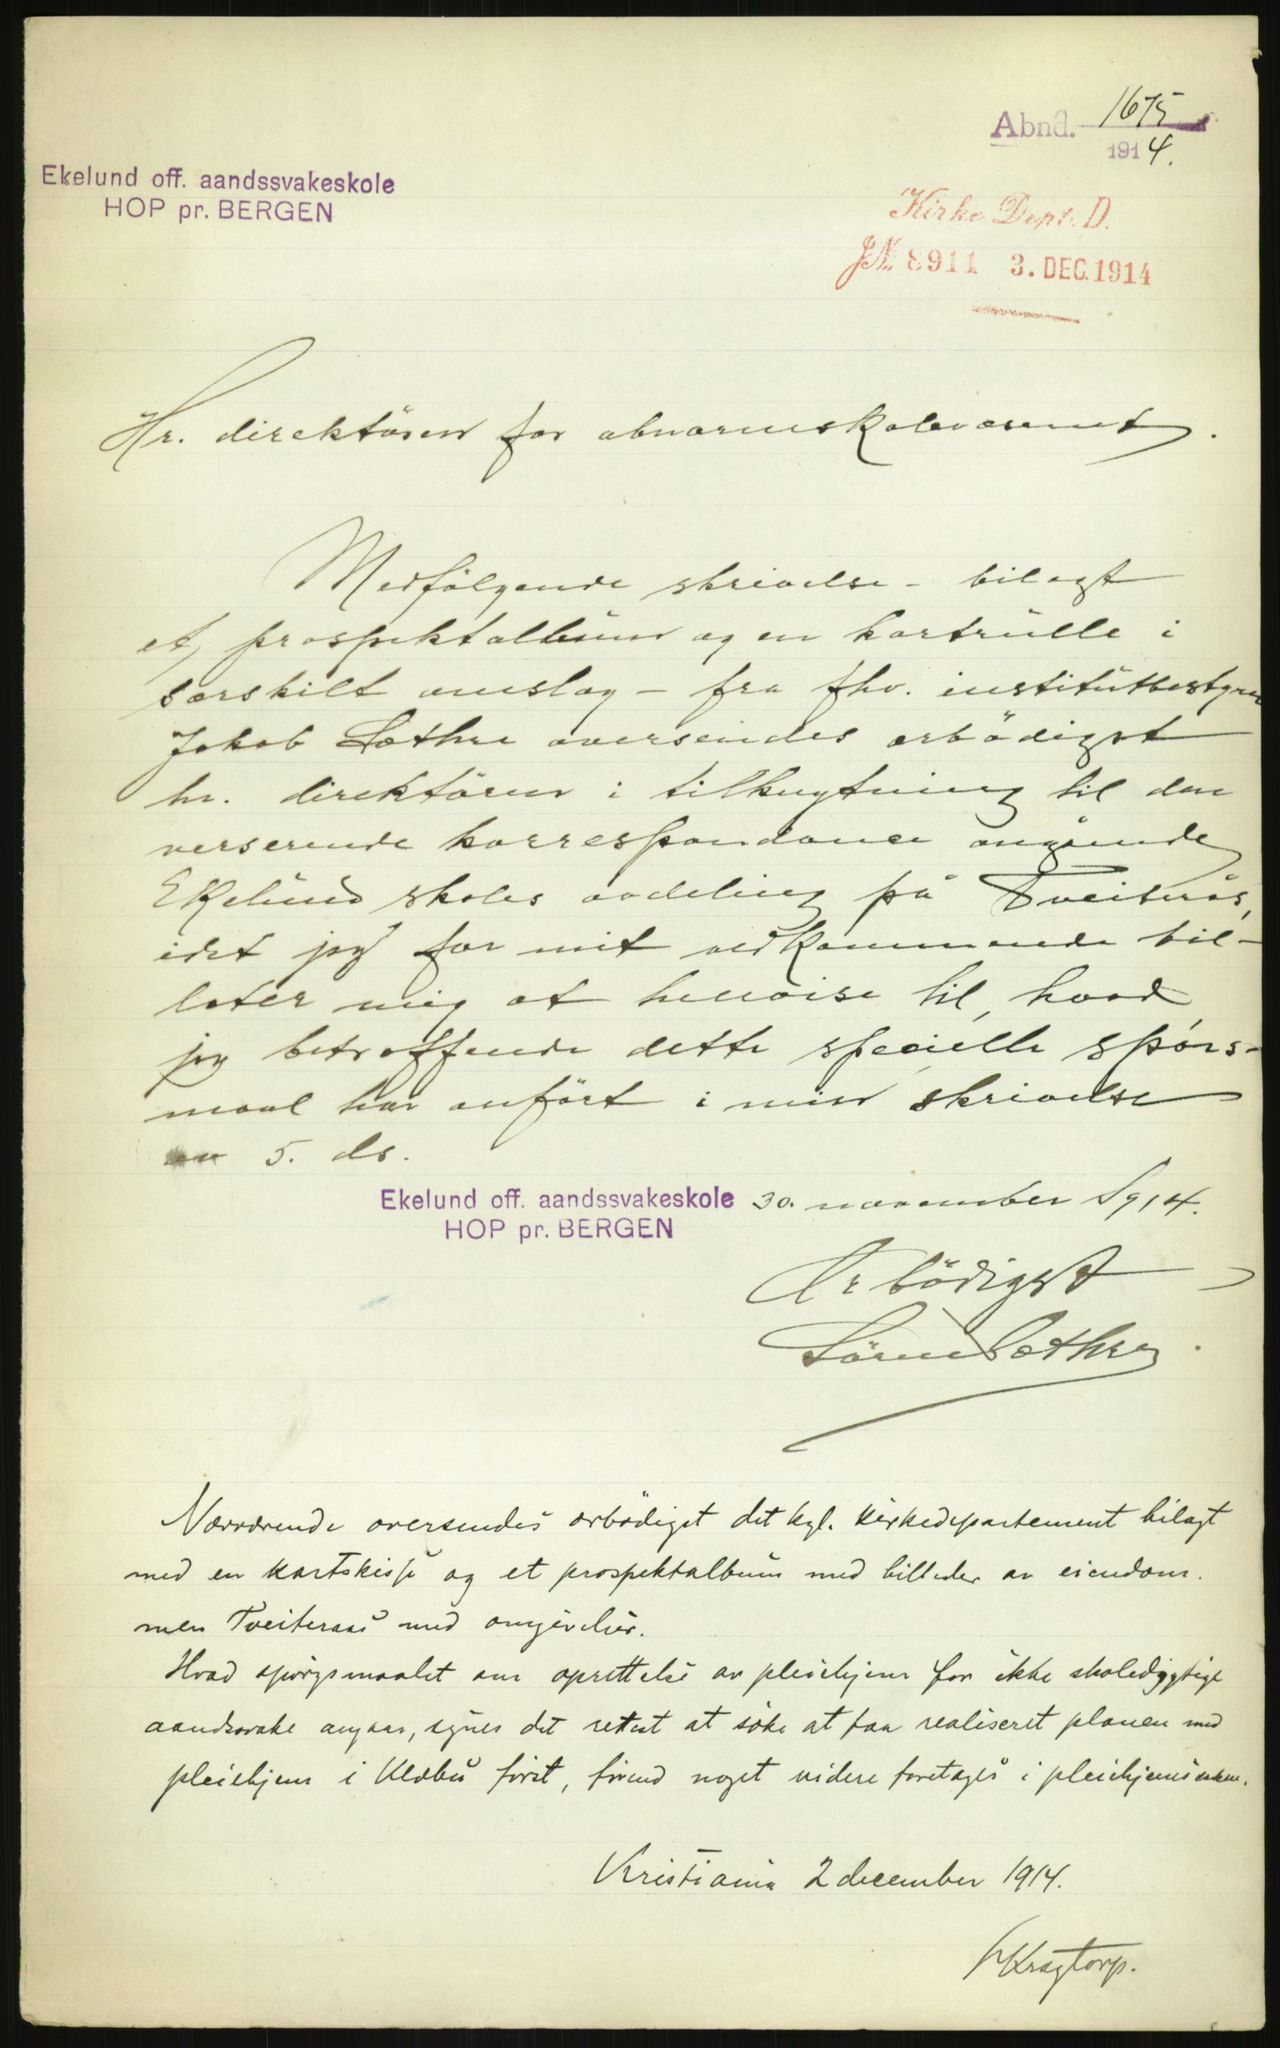 Abnd. 1675
1914.
Ekelund off. aandssvakeskole
HOP pr. BERGEN
Kirke Dept. D.
J№ 8911 3. DEC. 1914
Hr. direktören for abnormskolevæsenet.
Medfölgende skrivelse - bilagt
et prospektalbum og en kartrulle i
særskilt omslag - fra fhv. institutbestyrer
Jakob Sæthre oversendes ærbödigst
hr. direktören i tilknytning til den
verserende korrespondance angående
Ekelund skoles avdeling på Tveiterås,
idet jeg for mit vedkommende til-
later mig at henvise til, hvad
jeg betræffende dette specielle spörs-
maal har anfört i min skrivelse
av 5. ds.
Ekelund off. aandssvakeskole 30. november 1914.
HOP pr. BERGEN
Ærbödigst
Sören Sæthre.
Nærværende oversendes ærbödigst det kgl. kirkedepartement bilagt
med en kartskisse og et prospektalbum med billeder av eiendom-
men Tveiteraas med omgivelser.
Hvad spörgsmaalet om oprettelse av pleiehjem for ikke skoledygtige
aandssvake angaar, synes det rettest at söke at faa realiseret planen med
pleiehjem i Klæbu först, förend noget videre foretages i pleiehjemsveien.
Kristiania 2 december 1914.
Kragtorp.